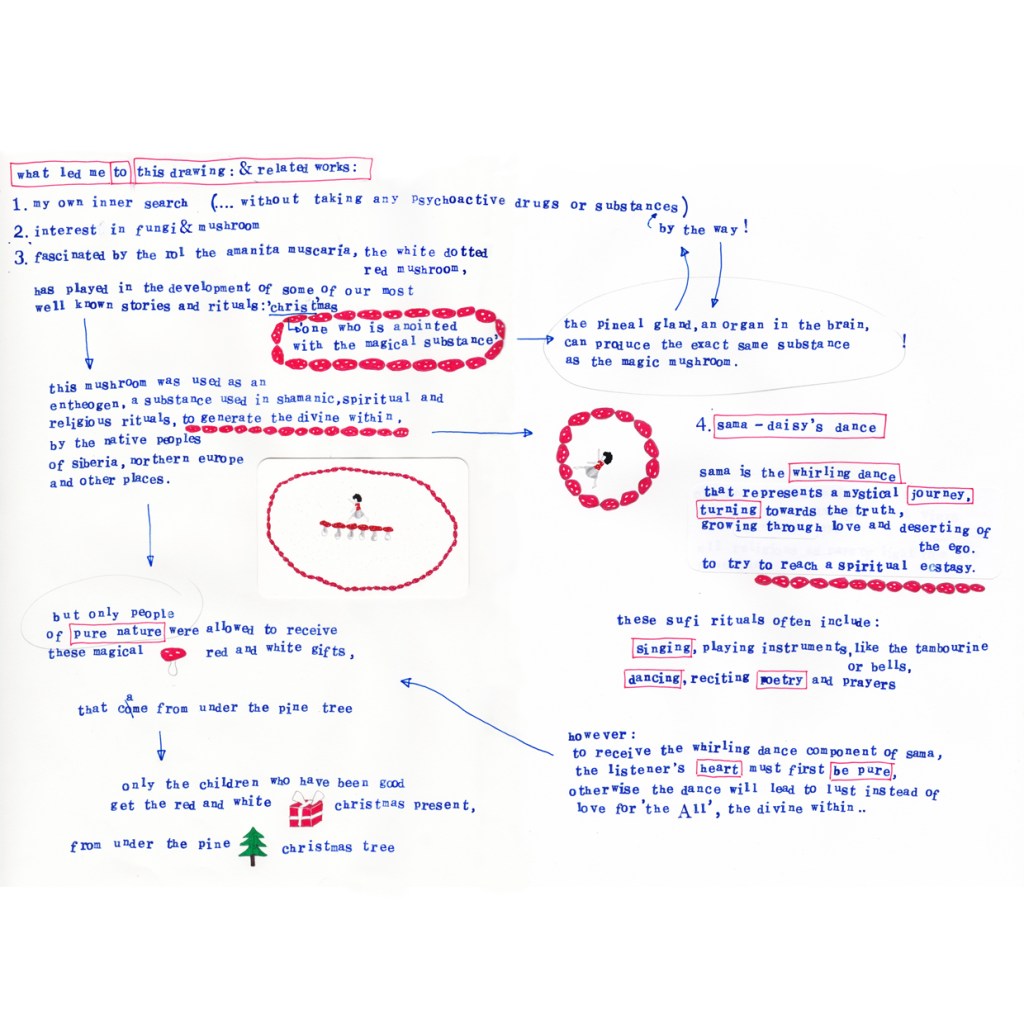 what led me to this drawing: & related works:
1. my own inner search (.... without taking any psychoactive drugs or substances)
by the way!
2. interest in fungi & mushroom
3. fascinated by the rol the amanita muscaria, the white dotted
red mushroom,
has played in the development of some of our most
well known stories and rituals: 'christ'mas
'one who is anointed
with the magical substance'
the pineal gland, an organ in the brain,
can produce the exact same substance
as the magic mushroom.
!
this mushroom was used as an
entheogen, a substance used in shamanic, spiritual and
religious rituals, to generate the divine within,
by the native peoples
of siberia, northern europe
and other places.
but only people
of pure nature were allowed to receive
these magical red and white gifts,
that came from under the pine tree
only the children who have been good
get the red and white christmas present,
from under the pine christmas tree
4. sama - daisy's dance
sama is the whirling dance
that represents a mystical journey,
turning towards the truth,
growing through love and deserting of
the ego.
to try to reach a spiritual ecstasy.
these sufi rituals often include:
singing, playing instruments, like the tambourine
or bells,
dancing, reciting poetry and prayers
however:
to receive the whirling dance component of sama,
the listener's heart must first be pure,
otherwise the dance will lead to lust instead of
love for 'the All', the divine within..